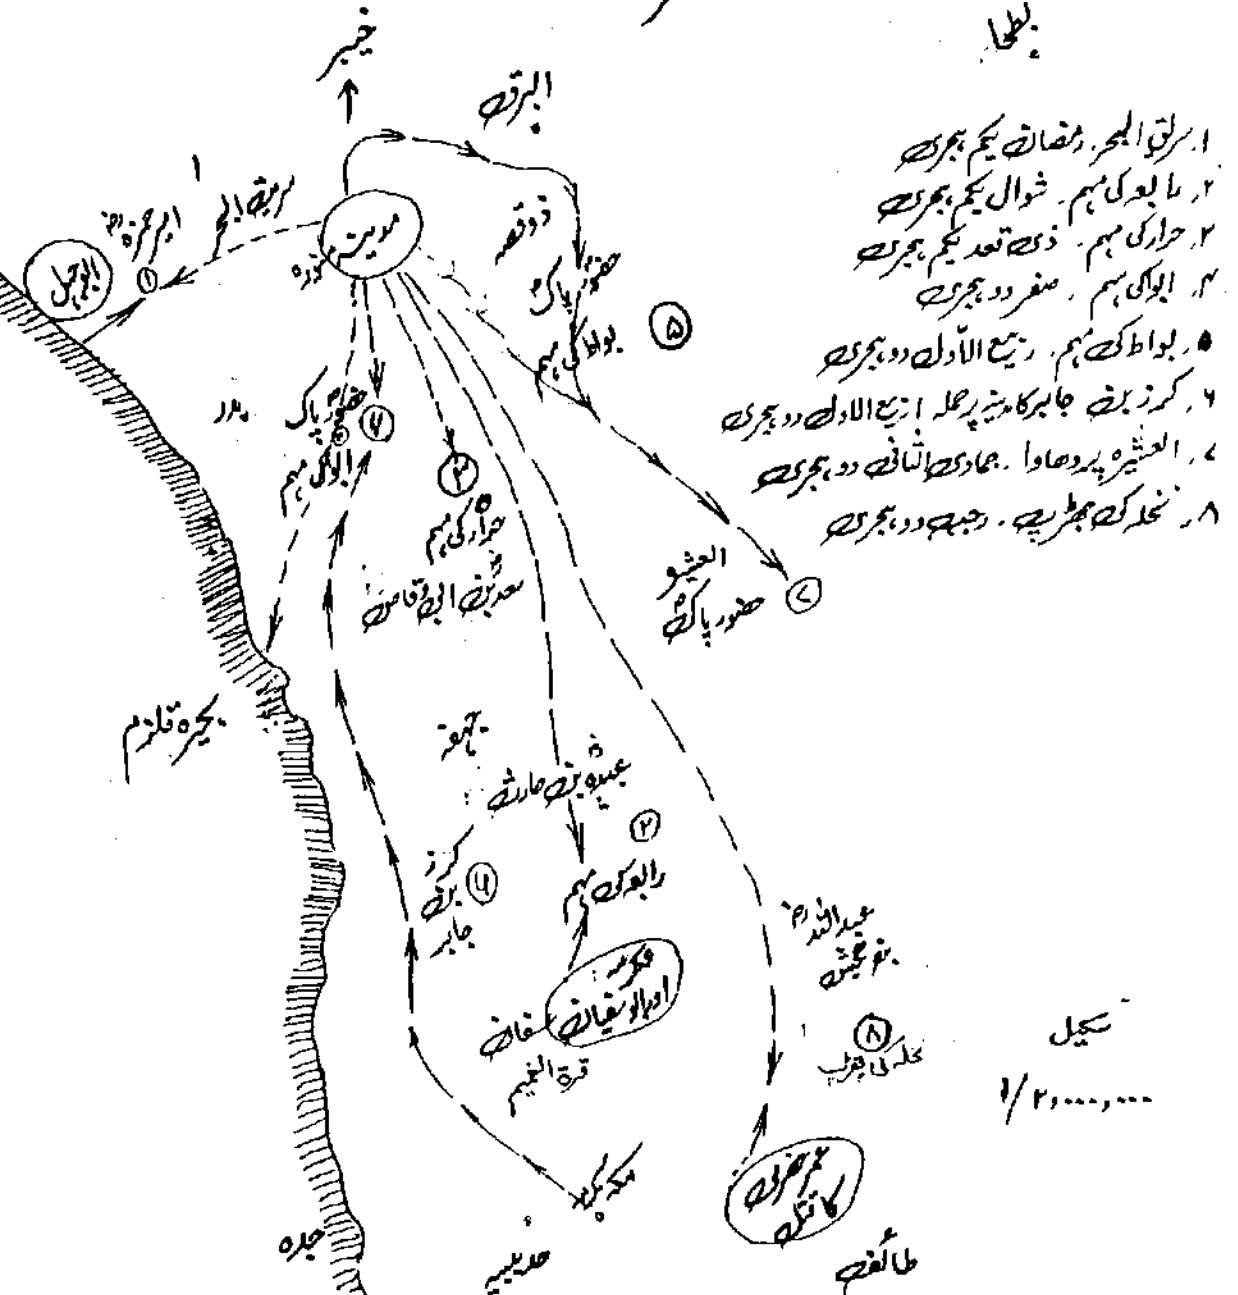 بطحا
خیبر
البرق
۱. سریۃ البحر. رمضان یکم ہجری
۲. رابعہ کی مہم. شوال یکم ہجری
۳. حرار کی مہم. ذی قعد یکم ہجری
۴. ابوا کی مہم. صفر دو ہجری
۵. بواط کی مہم. ربیع الاوّل دو ہجری
۶. کرز بن جابر کا مدینہ پر حملہ. ربیع الاول دو ہجری
۷. العشیرہ پر دھاوا. جمادی الثانی دو ہجری
۸. نخلہ کی جھڑپ. رجب دو ہجری
۱
سریۃ البحر
امیر حمزہؓ
۱
ابوجہل
مدینہ منورہ
ذوقصہ
حضورؐ پاک
بواط کی مہم
۵
بدر
حضورؐ پاک
۴
ابوا کی مہم
۶
۳
حرار کی مہم
سعدؓ بن ابی وقاص
العشیرہ
حضور پاکؐ
۷
بحیرہ قلزم
عبیدہؓ بن حارث
۲
رابعہ کی مہم
کرز
بن
جابر
۶
عکرمہ
اور ابوسفیان
عسفان
عبداللہؓ
بن جحش
۸
نخلہ کی جھڑپ
سکیل
۱/۲,۰۰۰,۰۰۰
مکہ مکرمہ
کا قتل
جدہ
حدیبیہ
طائف